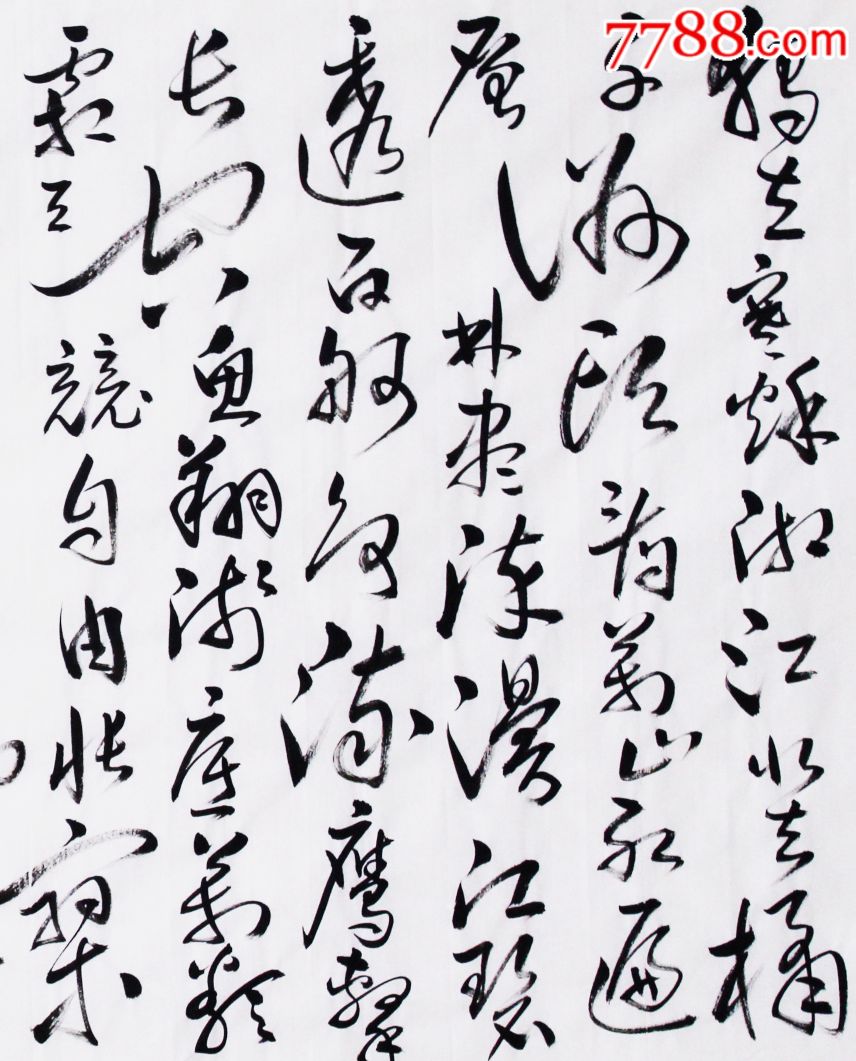 7788.com
獨立寒秋湘江北去橘
子洲頭看萬山紅遍
層林盡染漫江碧
透百舸争流鷹擊
長空魚翔淺底萬類
霜天競自由悵寥